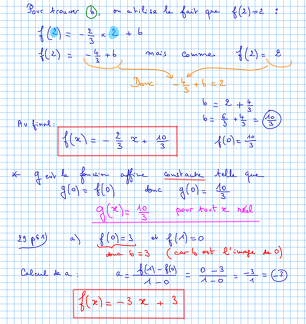 Pour trouver b, on utilise le fait que f(2) = 2 :
f(2) = -2/3 × 2 + b
f(2) = -4/3 + b mais comme f(2) = 2
Donc -4/3 + b = 2
b = 2 + 4/3
b = 6/3 + 4/3 = 10/3
Au final :
f(x) = -2/3 x + 10/3
f(0) = 10/3
* g est la fonction affine constante telle que
g(0) = f(0) donc g(0) = 10/3
g(x) = 10/3 pour tout x réel
a) f(0) = 3 et f(1) = 0
donc b = 3 (car b est l'image de 0)
Calcul de a : a = f(1) - f(0) / 1 - 0 = 0 - 3 / 1 - 0 = -3/1 = -3
f(x) = -3 x + 3